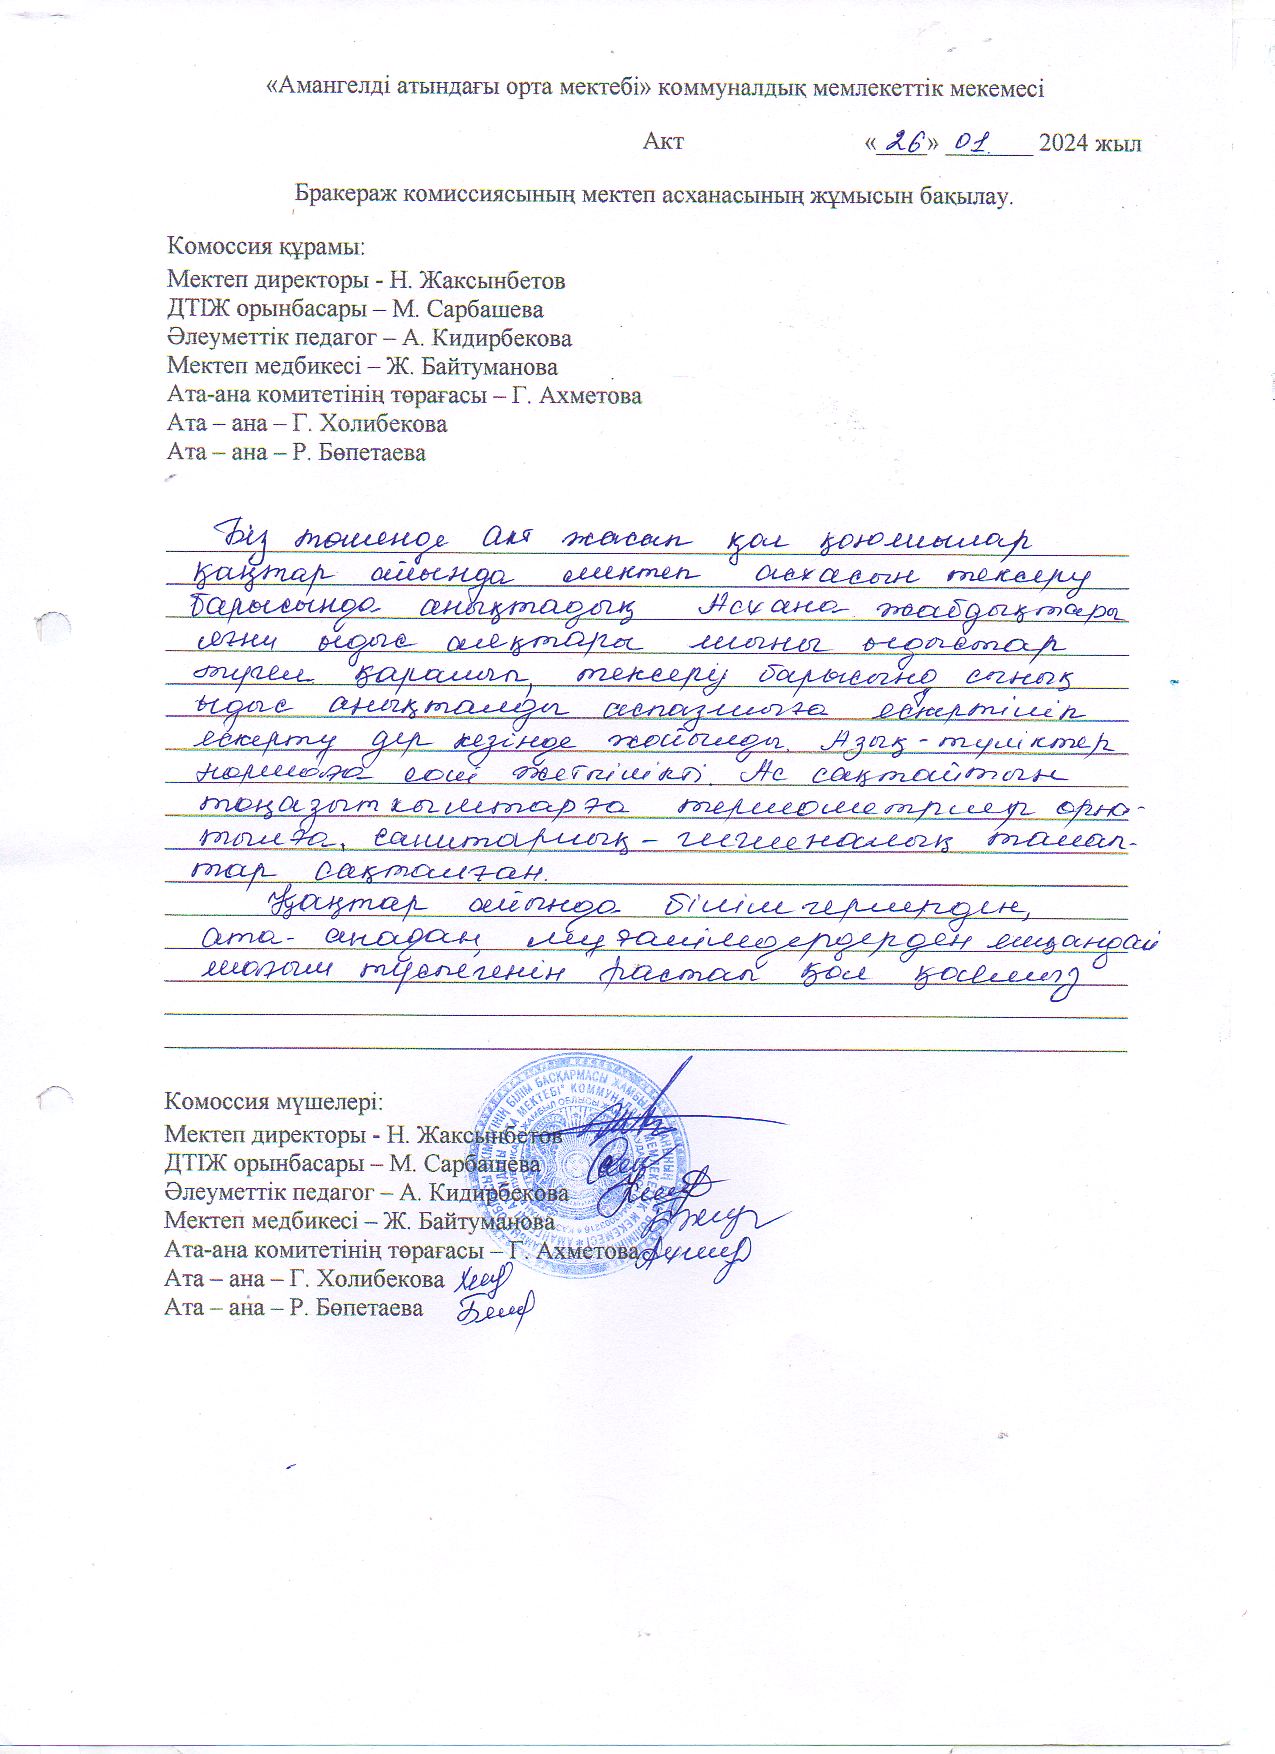 «Амангелді атындағы орта мектебі» коммуналдық мемлекеттік мекемесі
Акт «26» 01. 2024 жыл
Бракераж комиссиясының мектеп асханасының жұмысын бақылау.
Комоссия құрамы:
Мектеп директоры - Н. Жаксынбетов
ДТІЖ орынбасары – М. Сарбашева
Әлеуметтік педагог – А. Кидирбекова
Мектеп медбикесі – Ж. Байтуманова
Ата-ана комитетінің төрағасы – Г. Ахметова
Ата – ана – Г. Холибекова
Ата – ана – Р. Бөпетаева
Біз төменде акт жасап қол қоюшылар
қаңтар айында мектеп асхасын тексеру
барысында анықтадық Асхана жабдықтары
яғни ыдыс аяқтары шыны ыдыстар
түгел қаралып, тексеру барысында сынық
ыдыс анықталды аспазшыға ескертіліп
ескерту дер кезінде жойылды. Азық-түліктер
нормаға сай жеткілікті. Ас сақтайтын
тоңазытқыштарға термометрлер орна-
тылға, санитарлық-гигиеналық талап-
тар сақталған.
Қаңтар айында білімгерлерден,
ата-анадан, мұғалімдердерден ешқандай
шағым түспегенін растап қол қоямыз
Комоссия мүшелері:
Мектеп директоры - Н. Жаксынбетов
ДТІЖ орынбасары – М. Сарбашева
Әлеуметтік педагог – А. Кидирбекова
Мектеп медбикесі – Ж. Байтуманова
Ата-ана комитетінің төрағасы – Г. Ахметова
Ата – ана – Г. Холибекова
Ата – ана – Р. Бөпетаева